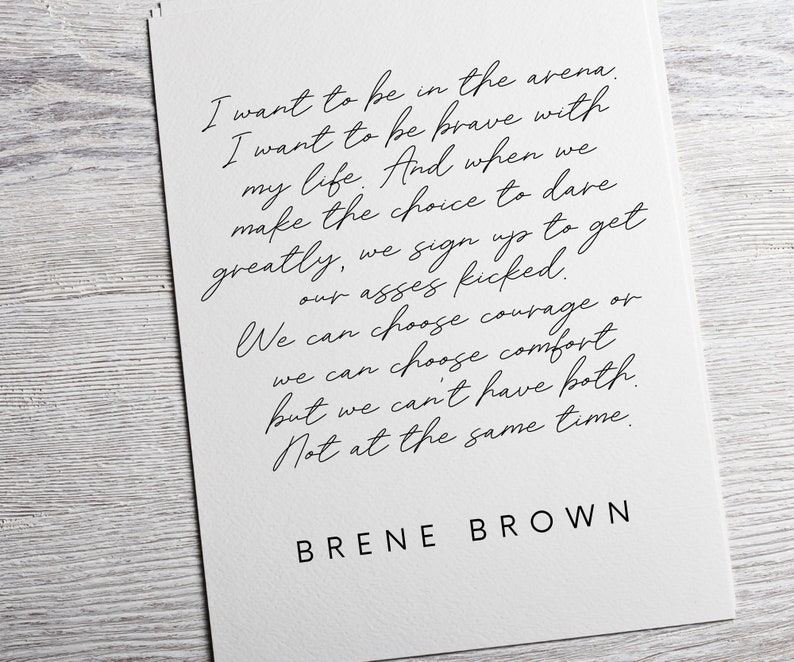 I want to be in the arena.
I want to be brave with
my life. And when we
make the choice to dare
greatly, we sign up to get
our asses kicked.
We can choose courage or
we can choose comfort
but we can't have both.
Not at the same time.
BRENE BROWN